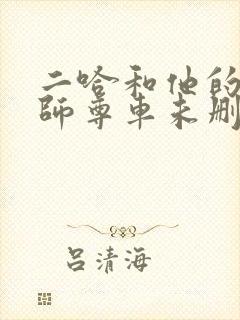 二哈和他的
師尊車未删
吕清海